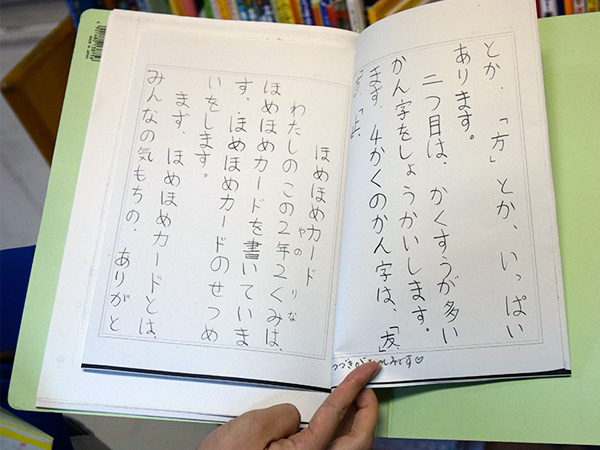 とか、「方」とか、いっぱい
あります。
二つ目は、かくすうが多い
かん字をしょうかいします。
まず、4かくのかん字は、「友、
つづきがたのしみです♡
ほめほめカード
やの りな
わたしのこの2年2くみは、
ほめほめカードを書いていま
す。ほめほめカードのせつめ
いをします。
まず、ほめほめカードとは、
みんなの気もちの、ありがと